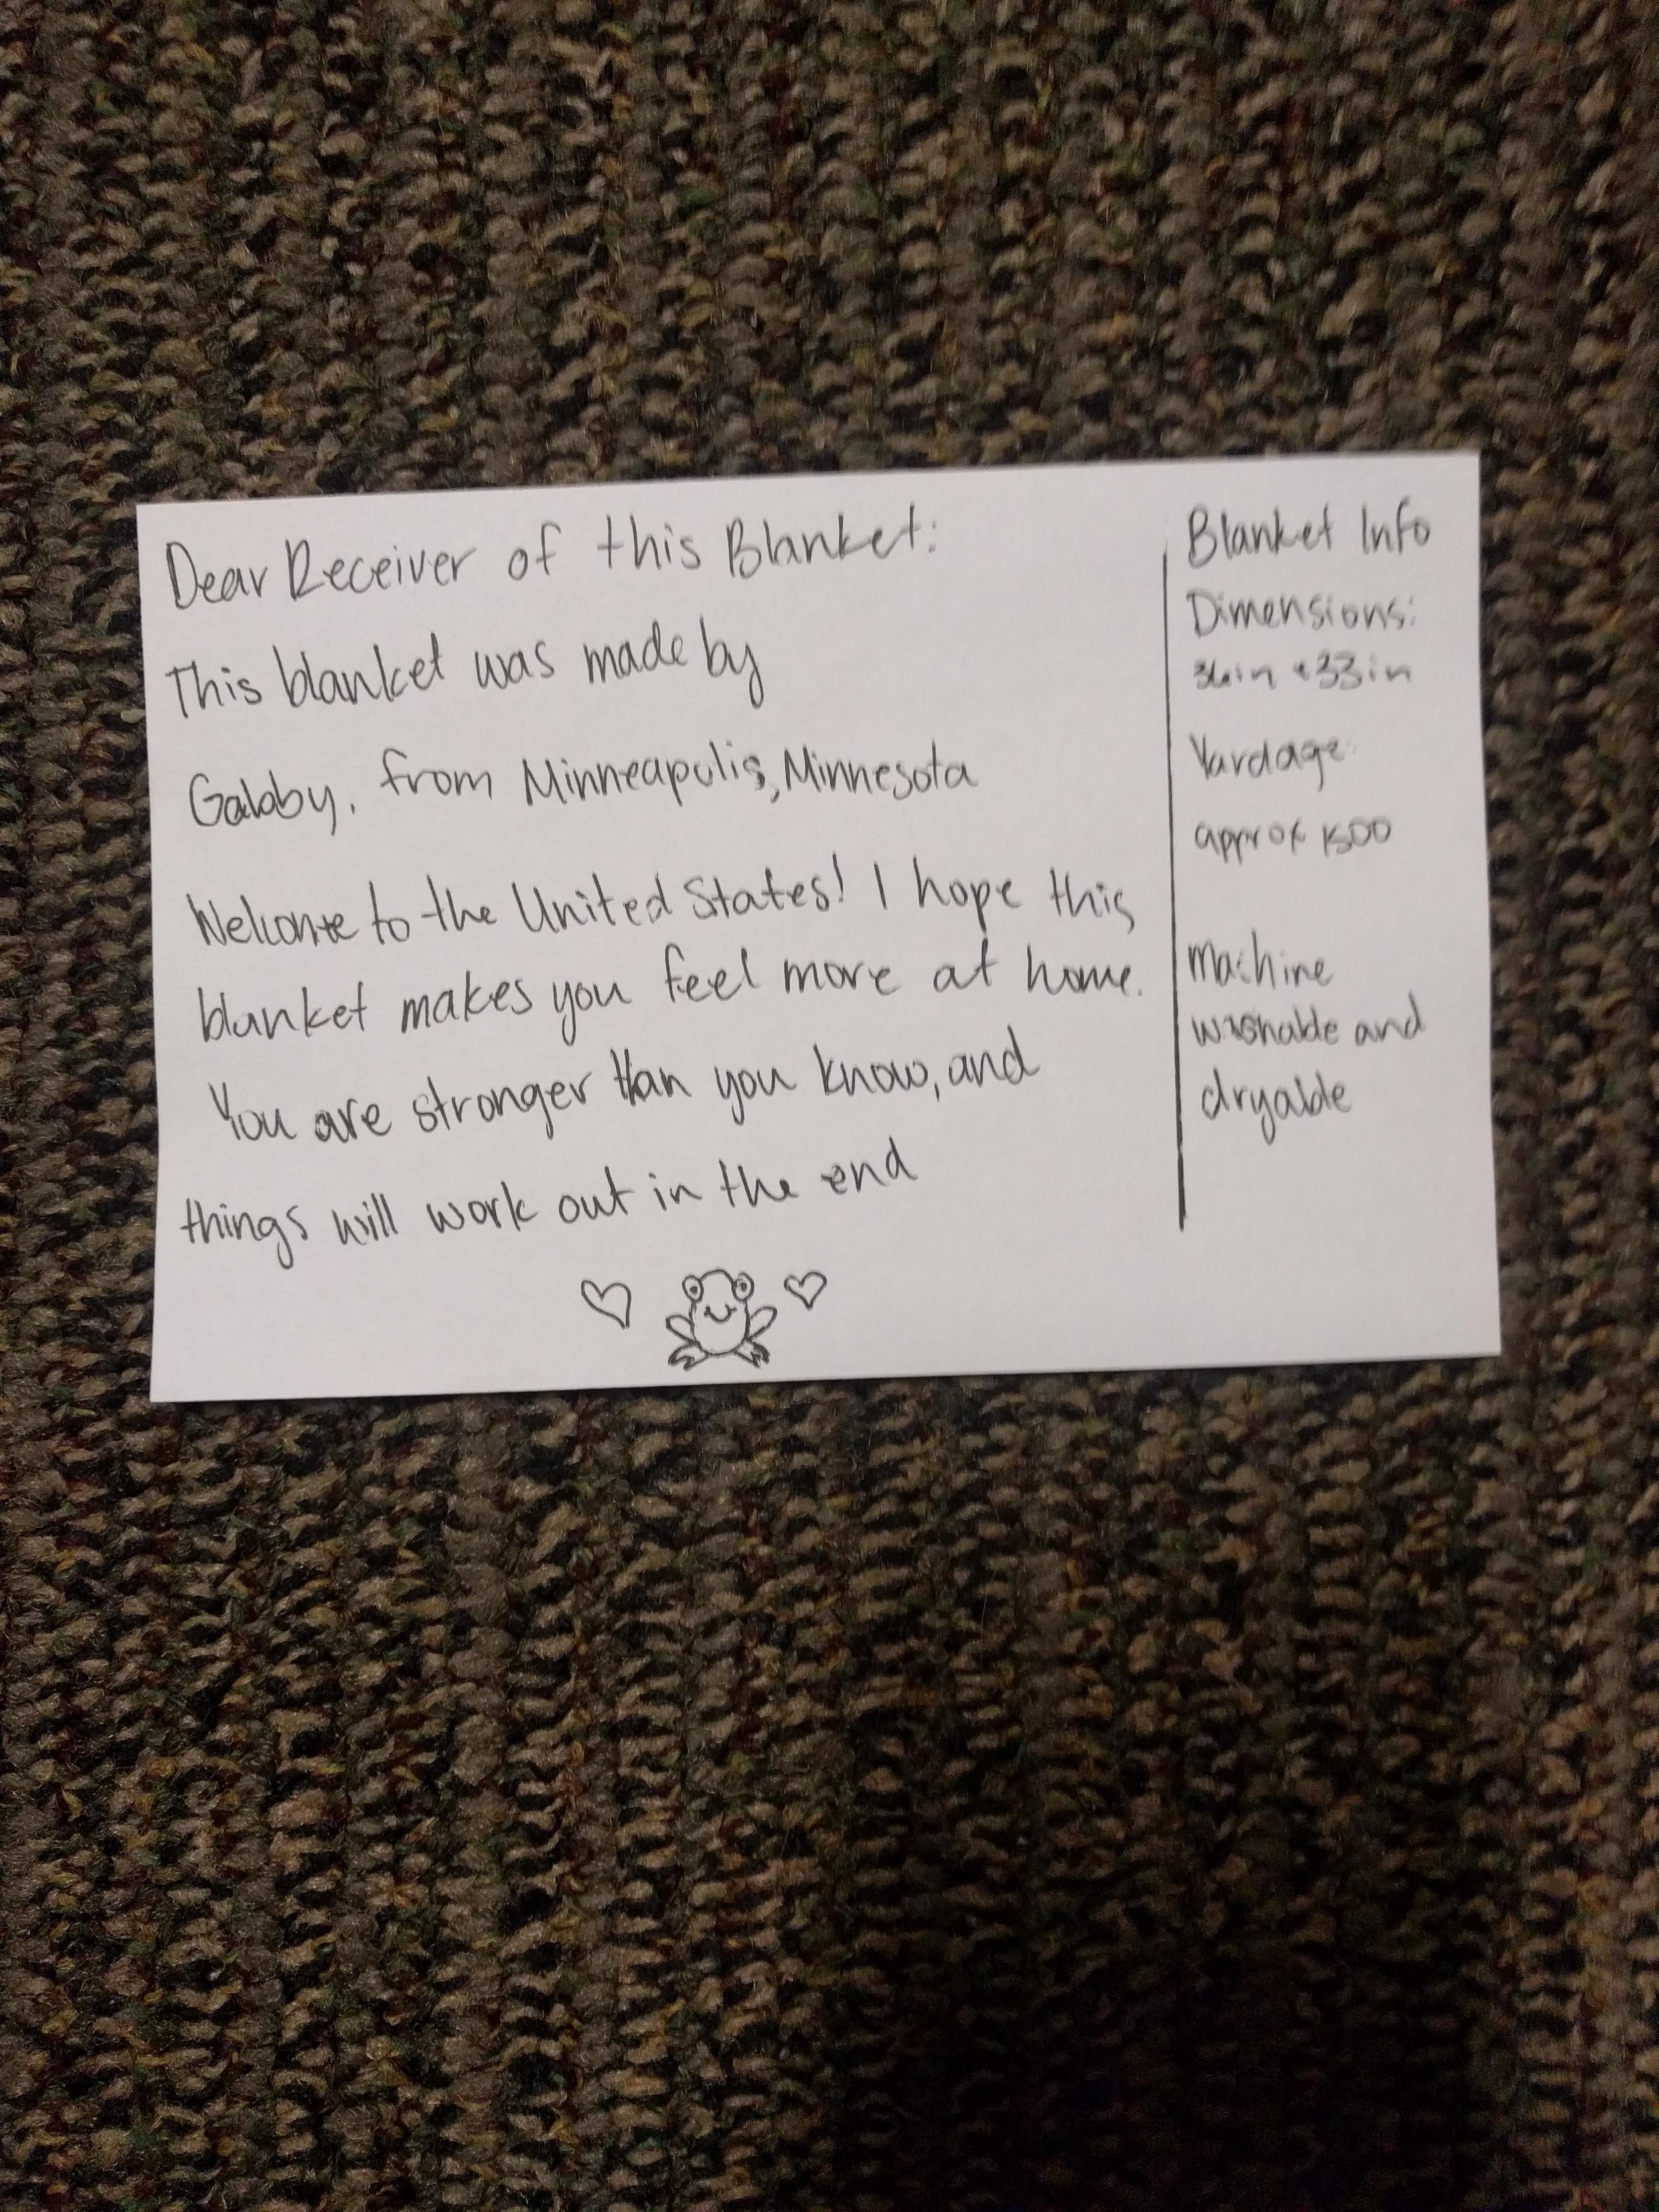 Dear Receiver of this Blanket:
This blanket was made by
Gabby, from Minneapolis, Minnesota
Welcome to the United States! I hope this
blanket makes you feel more at home.
You are stronger than you know, and
things will work out in the end
Blanket Info
Dimensions:
36in x 33in
Yardage:
approx 1500
machine
washable and
dryable